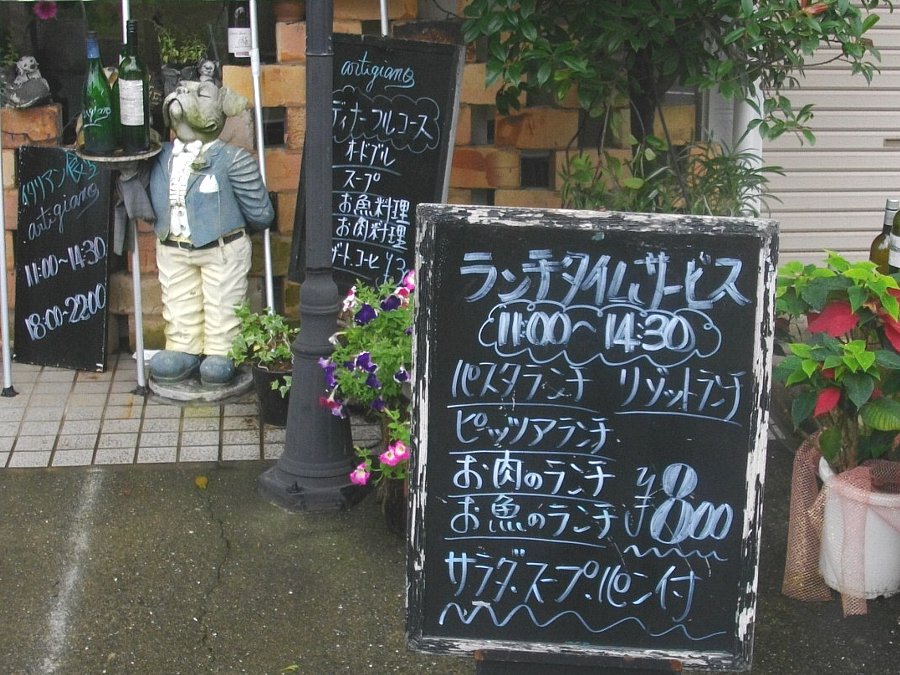 artigiano
ディナーフルコース
オードブル
スープ
お魚料理
お肉料理
コーヒ
イタリアン食堂
artigiano
11:00～14:30
18:00～22:00
ランチタイムサービス
11:00～14:30
パスタランチ リゾットランチ
ピッツアランチ
お肉のランチ
お魚のランチ ¥800
サラダ・スープ・パン付